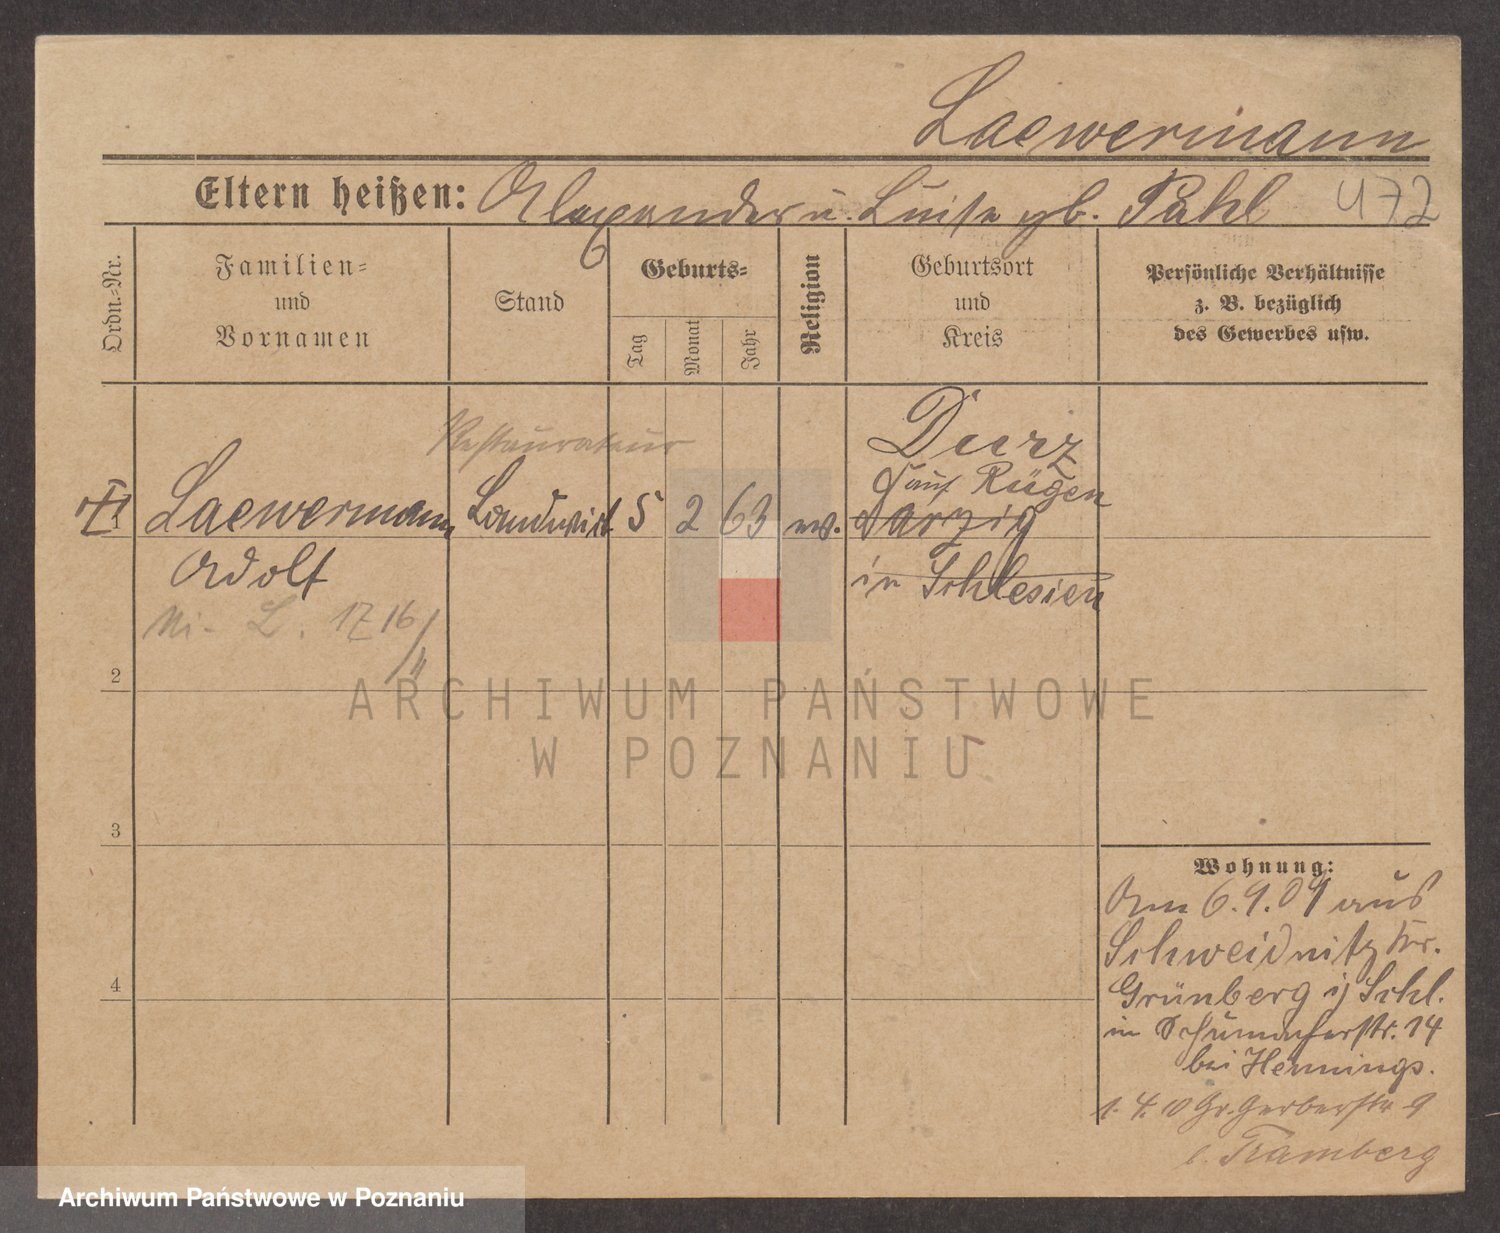 Laewermann
Eltern heißen: Alexander u. Luise gb. Pahl 472
Ordn.-Nr.
Familien-
und
Vornamen
Stand
Geburts-
Tag
Monat
Jahr
Religion
Geburtsort
und
Kreis
Persönliche Verhältnisse
z. B. bezüglich
des Gewerbes usw.
Restaurateur
1 Laewermann Landwirt 5 2 63 ev.
Adolf
auf Rügen
Darzig
in Schlesien
2
3
4
Wohnung:
Am 6.9.09 aus
Schweidnitz Kr.
Grünberg i/ Schl.
in Schumacherstr. 14
bei Hennings.
1. 4. 10 Gr. Gerberstr 9
b. Tramberg
ARCHIWUM PAŃSTWOWE
W POZNANIU
Archiwum Państwowe w Poznaniu